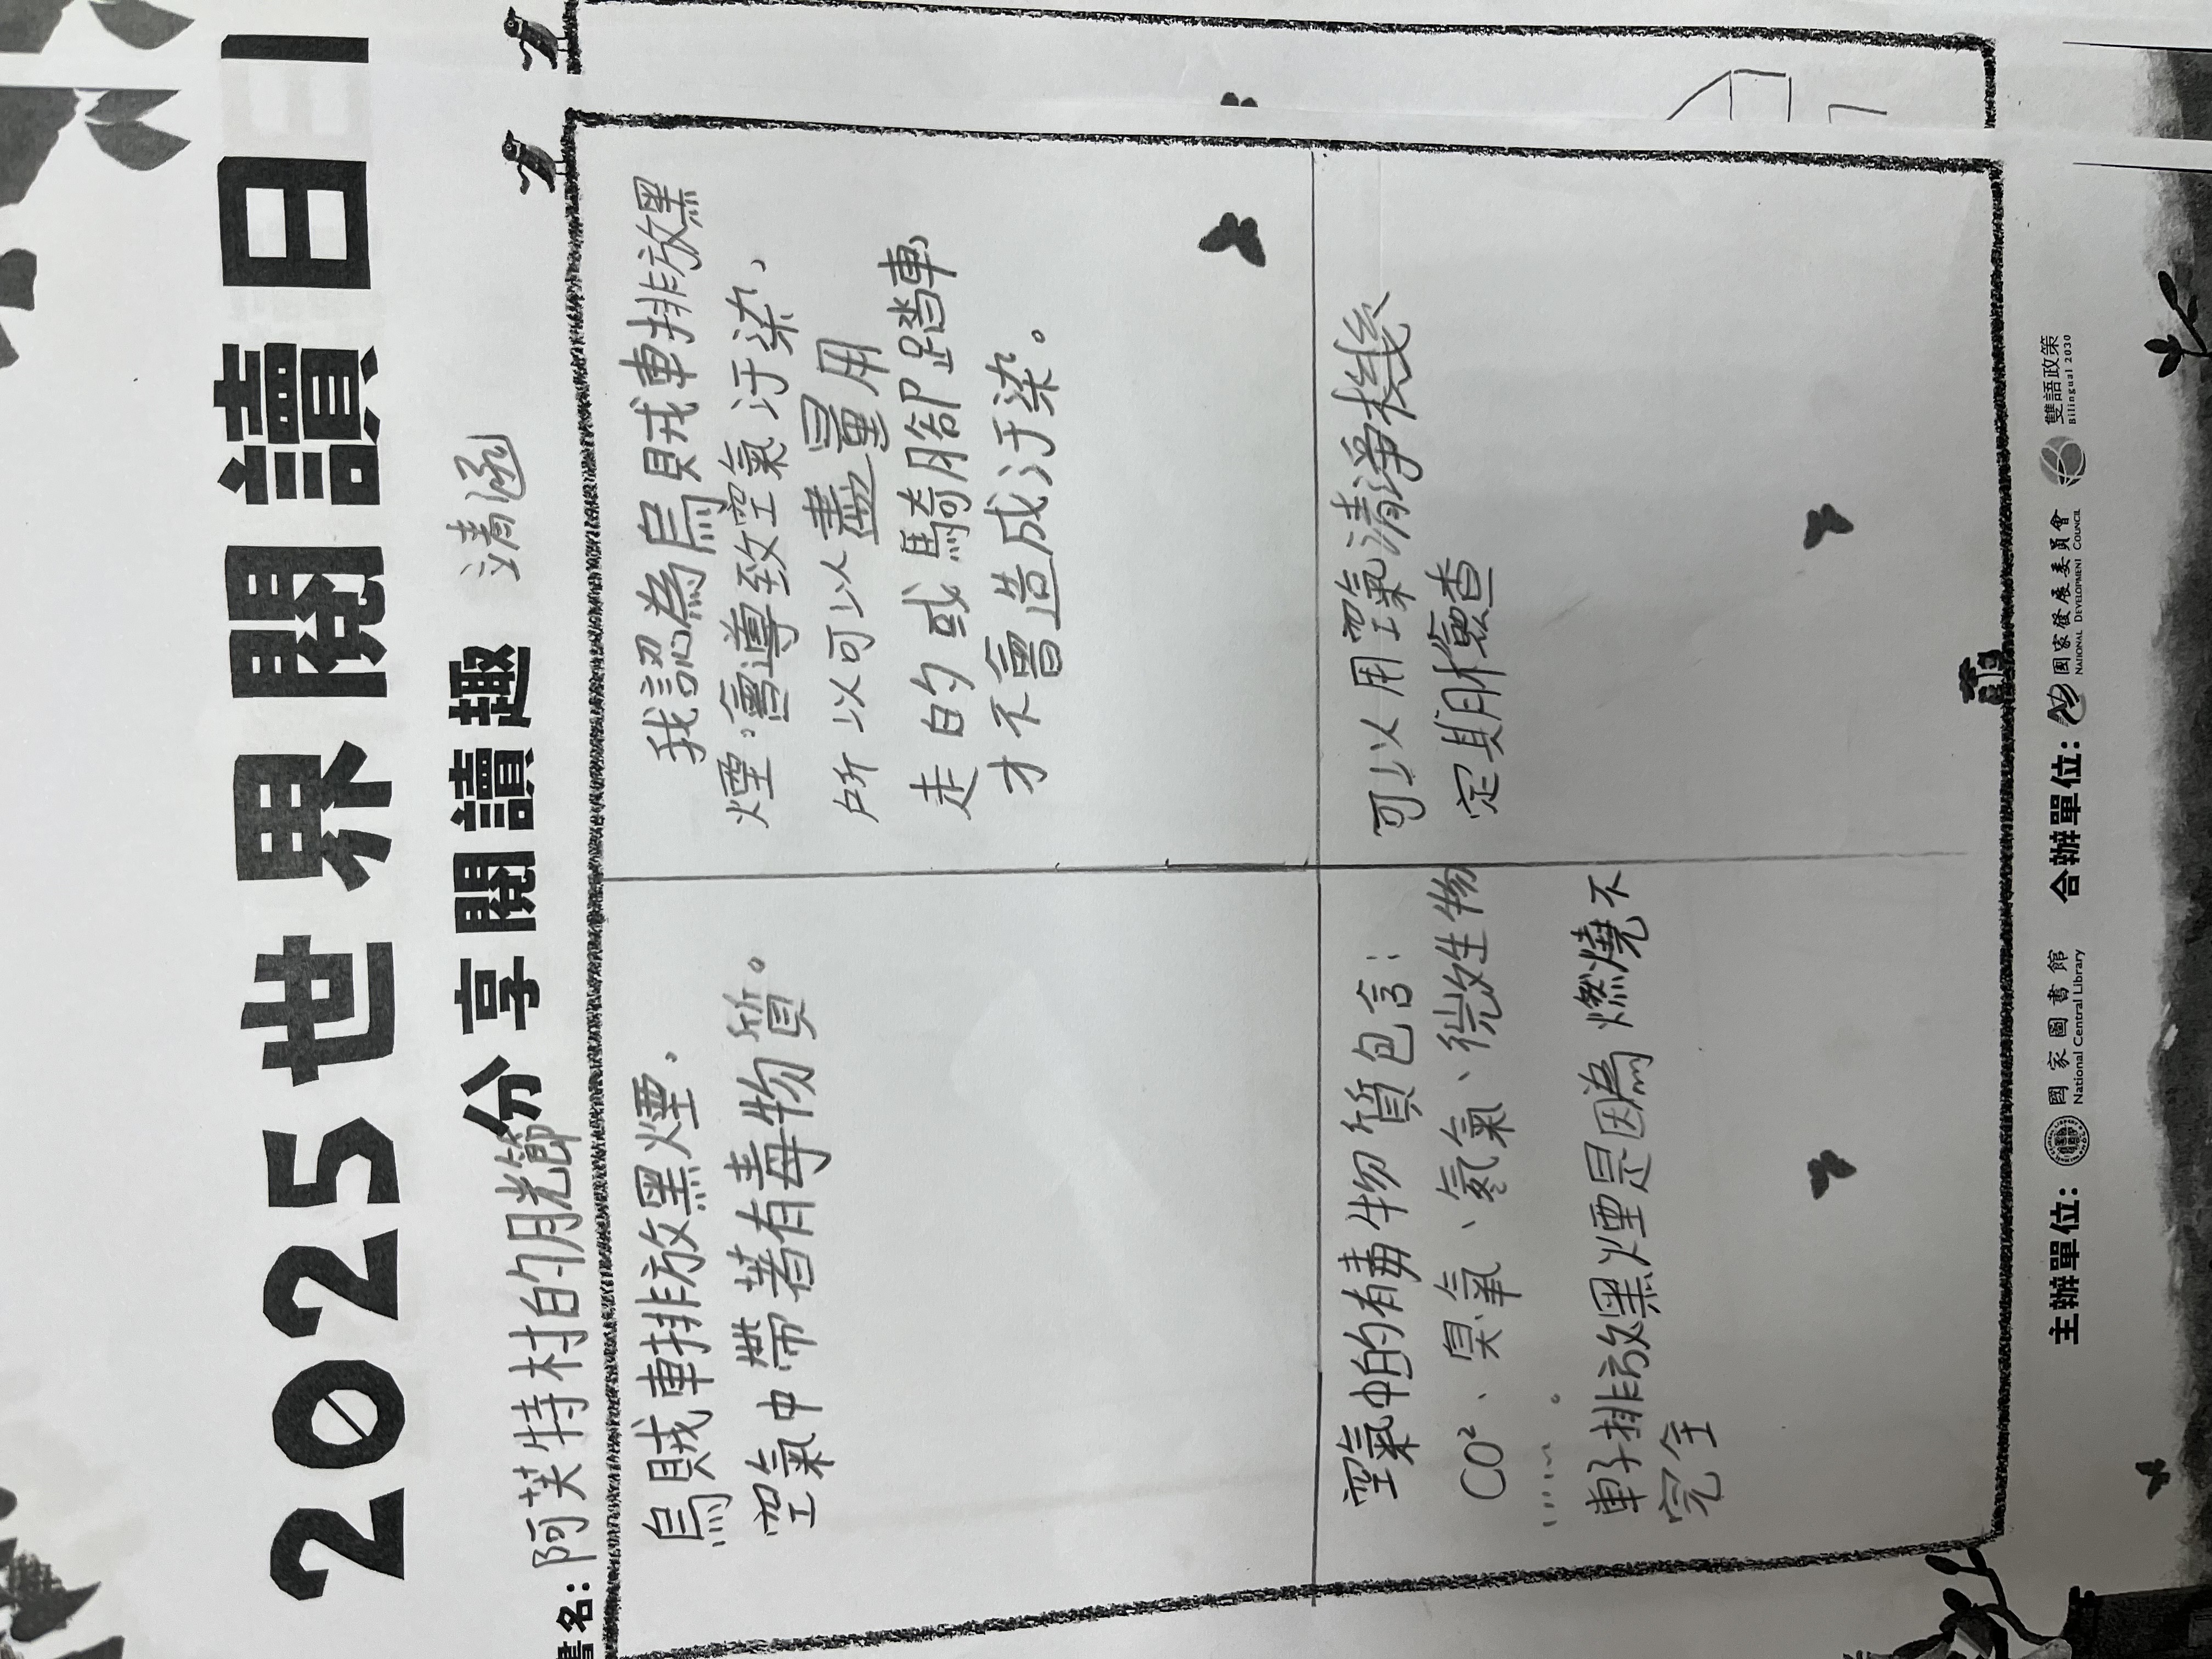 2025世界閱讀日
分享閱讀趣
靖涵
書名：阿芙特村的月光節
烏賊車排放黑煙，
空氣中帶著有毒物質。
我認為烏賊車排放黑
煙，會導致空氣汙染，
所以可以盡量用
走的或騎腳踏車
才不會造成汙染。
空氣中的有毒物質包含：
CO²、臭氧、氡氣、微生物
……。
車子排放黑煙是因為燃燒不
完全
可以用空氣清淨機
定期檢查
主辦單位：
國家圖書館
National Central Library
合辦單位：
國家發展委員會
NATIONAL DEVELOPMENT COUNCIL
雙語政策
Bilingual 2030